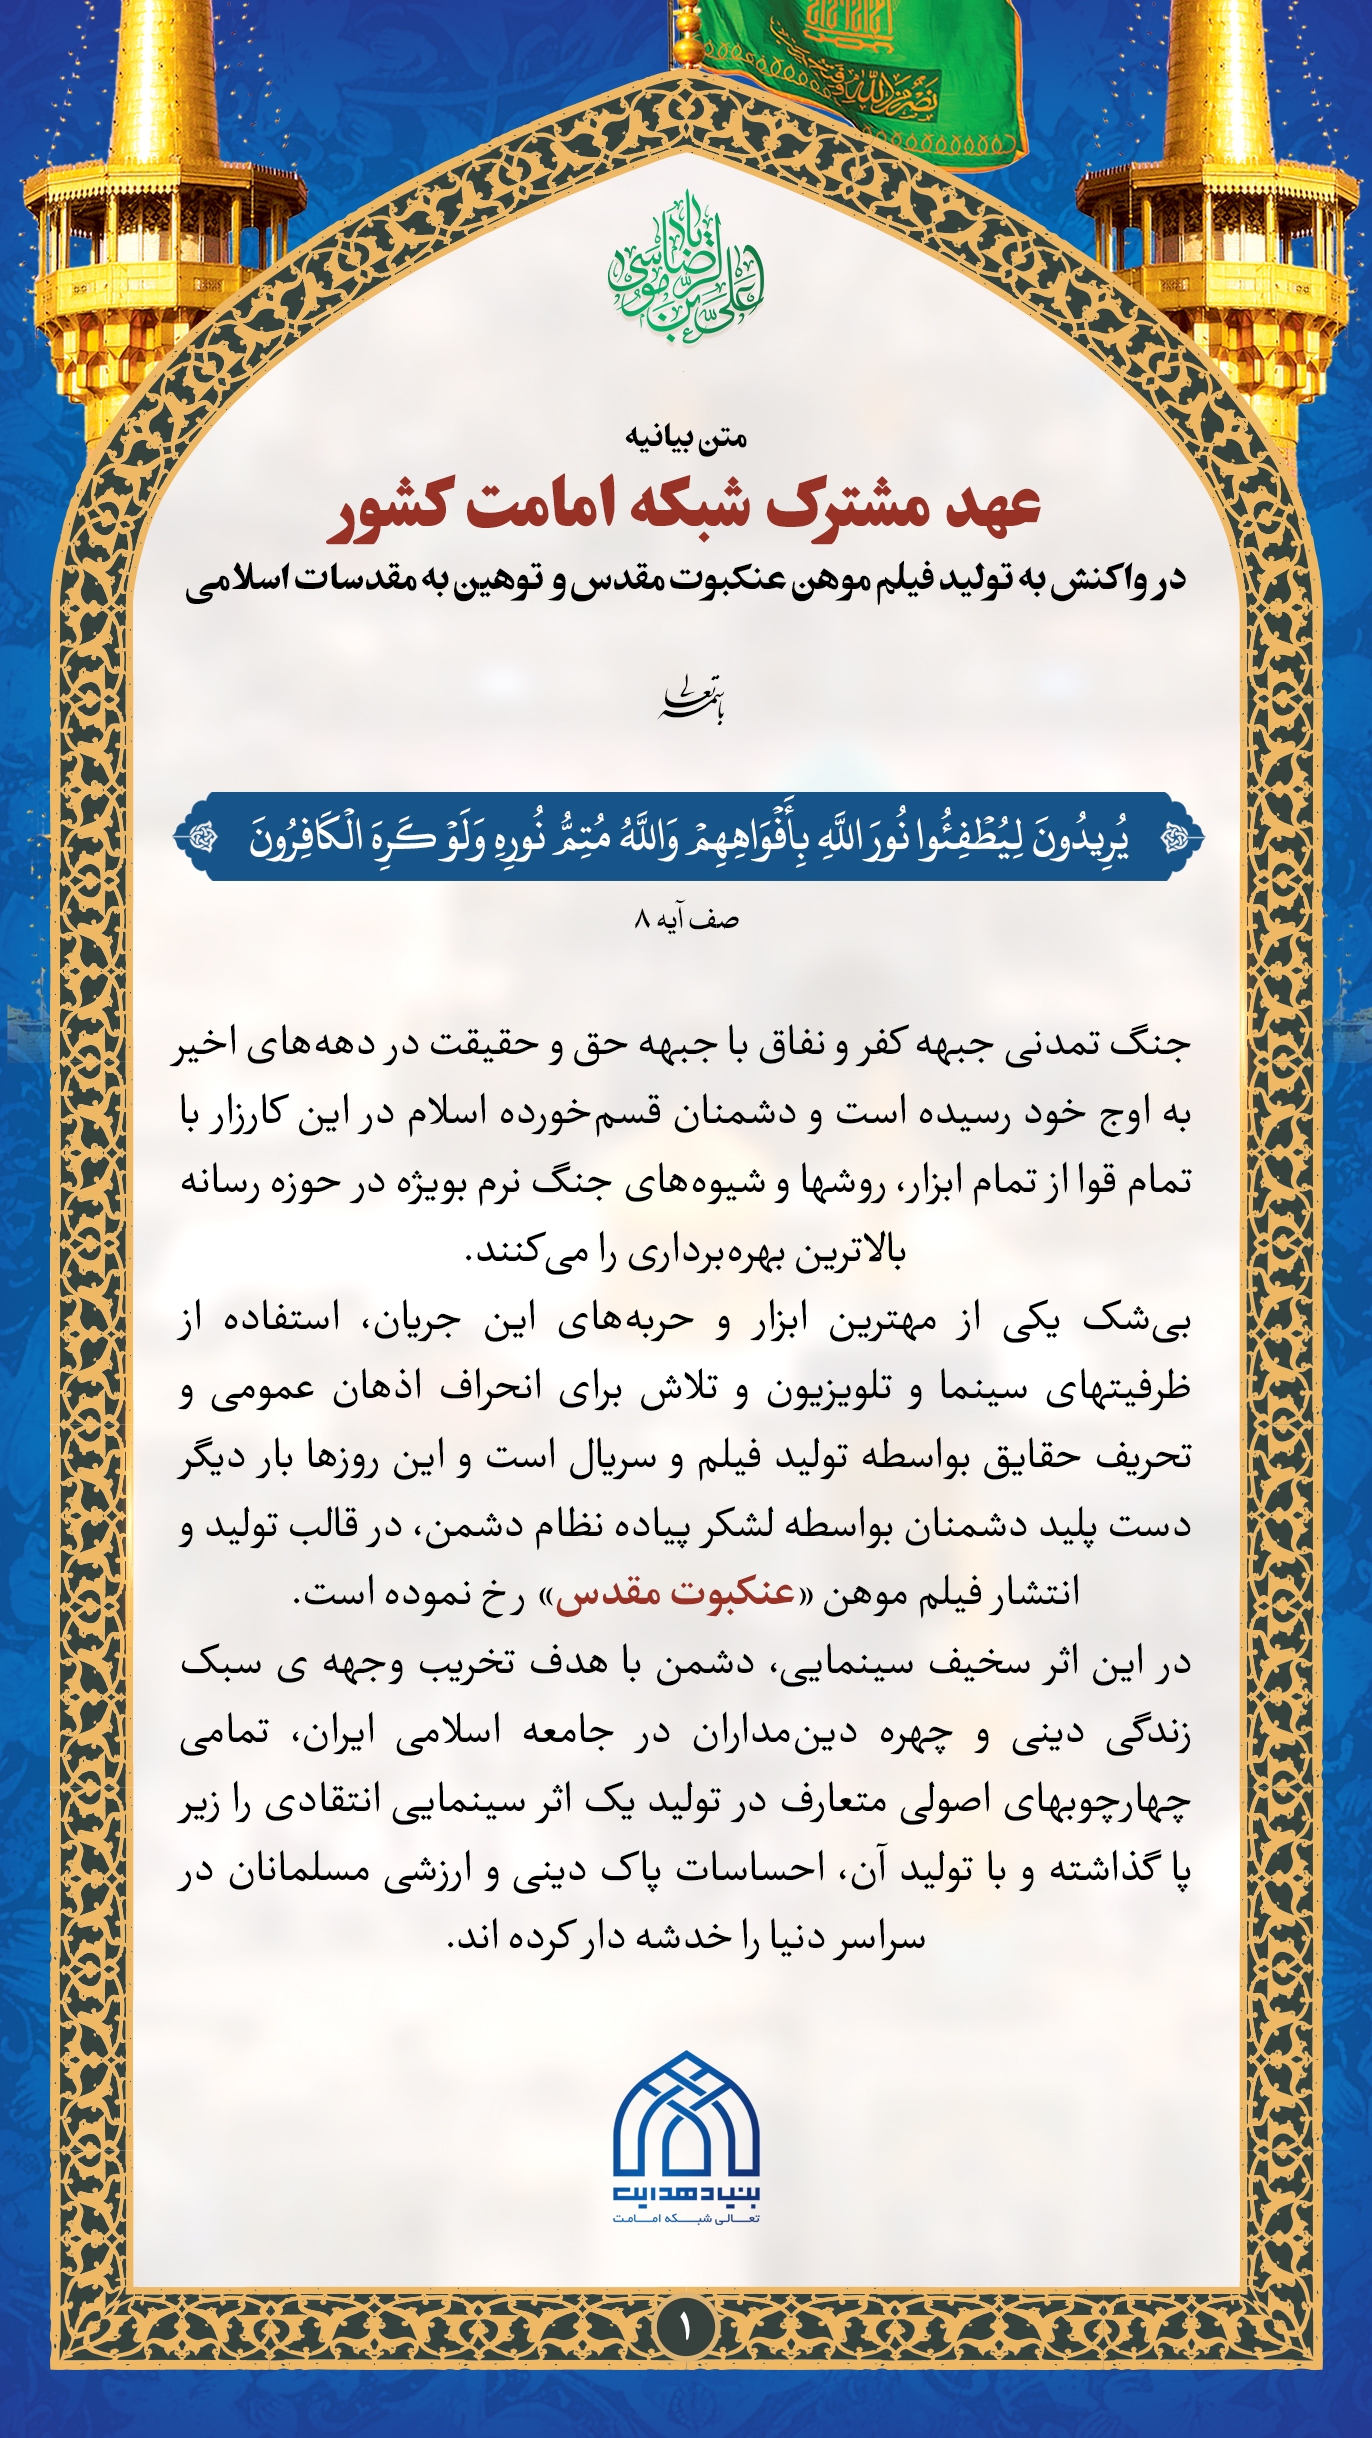 نَصْرٌ مِنَ اللَّهِ وَفَتْحٌ قَرِيبٌ
یا علی بن موسی الرضا
متن بیانیه
عهد مشترک شبکه امامت کشور
در واکنش به تولید فیلم موهن عنکبوت مقدس و توهین به مقدسات اسلامی
باسمه تعالی
يُرِيدُونَ لِيُطْفِئُوا نُورَ اللَّهِ بِأَفْوَاهِهِمْ وَاللَّهُ مُتِمُّ نُورِهِ وَلَوْ كَرِهَ الْكَافِرُونَ
صف آیه ۸
جنگ تمدنی جبهه کفر و نفاق با جبهه حق و حقیقت در دهه‌های اخیر
به اوج خود رسیده است و دشمنان قسم‌خورده اسلام در این کارزار با
تمام قوا از تمام ابزار، روشها و شیوه‌های جنگ نرم بویژه در حوزه رسانه
بالاترین بهره‌برداری را می‌کنند.
بی‌شک یکی از مهترین ابزار و حربه‌های این جریان، استفاده از
ظرفیتهای سینما و تلویزیون و تلاش برای انحراف اذهان عمومی و
تحریف حقایق بواسطه تولید فیلم و سریال است و این روزها بار دیگر
دست پلید دشمنان بواسطه لشکر پیاده نظام دشمن، در قالب تولید و
انتشار فیلم موهن «عنکبوت مقدس» رخ نموده است.
در این اثر سخیف سینمایی، دشمن با هدف تخریب وجهه ی سبک
زندگی دینی و چهره دین‌مداران در جامعه اسلامی ایران، تمامی
چهارچوبهای اصولی متعارف در تولید یک اثر سینمایی انتقادی را زیر
پا گذاشته و با تولید آن، احساسات پاک دینی و ارزشی مسلمانان در
سراسر دنیا را خدشه دار کرده اند.
بنیاد هدایت
تعالی شبکه امامت
۱